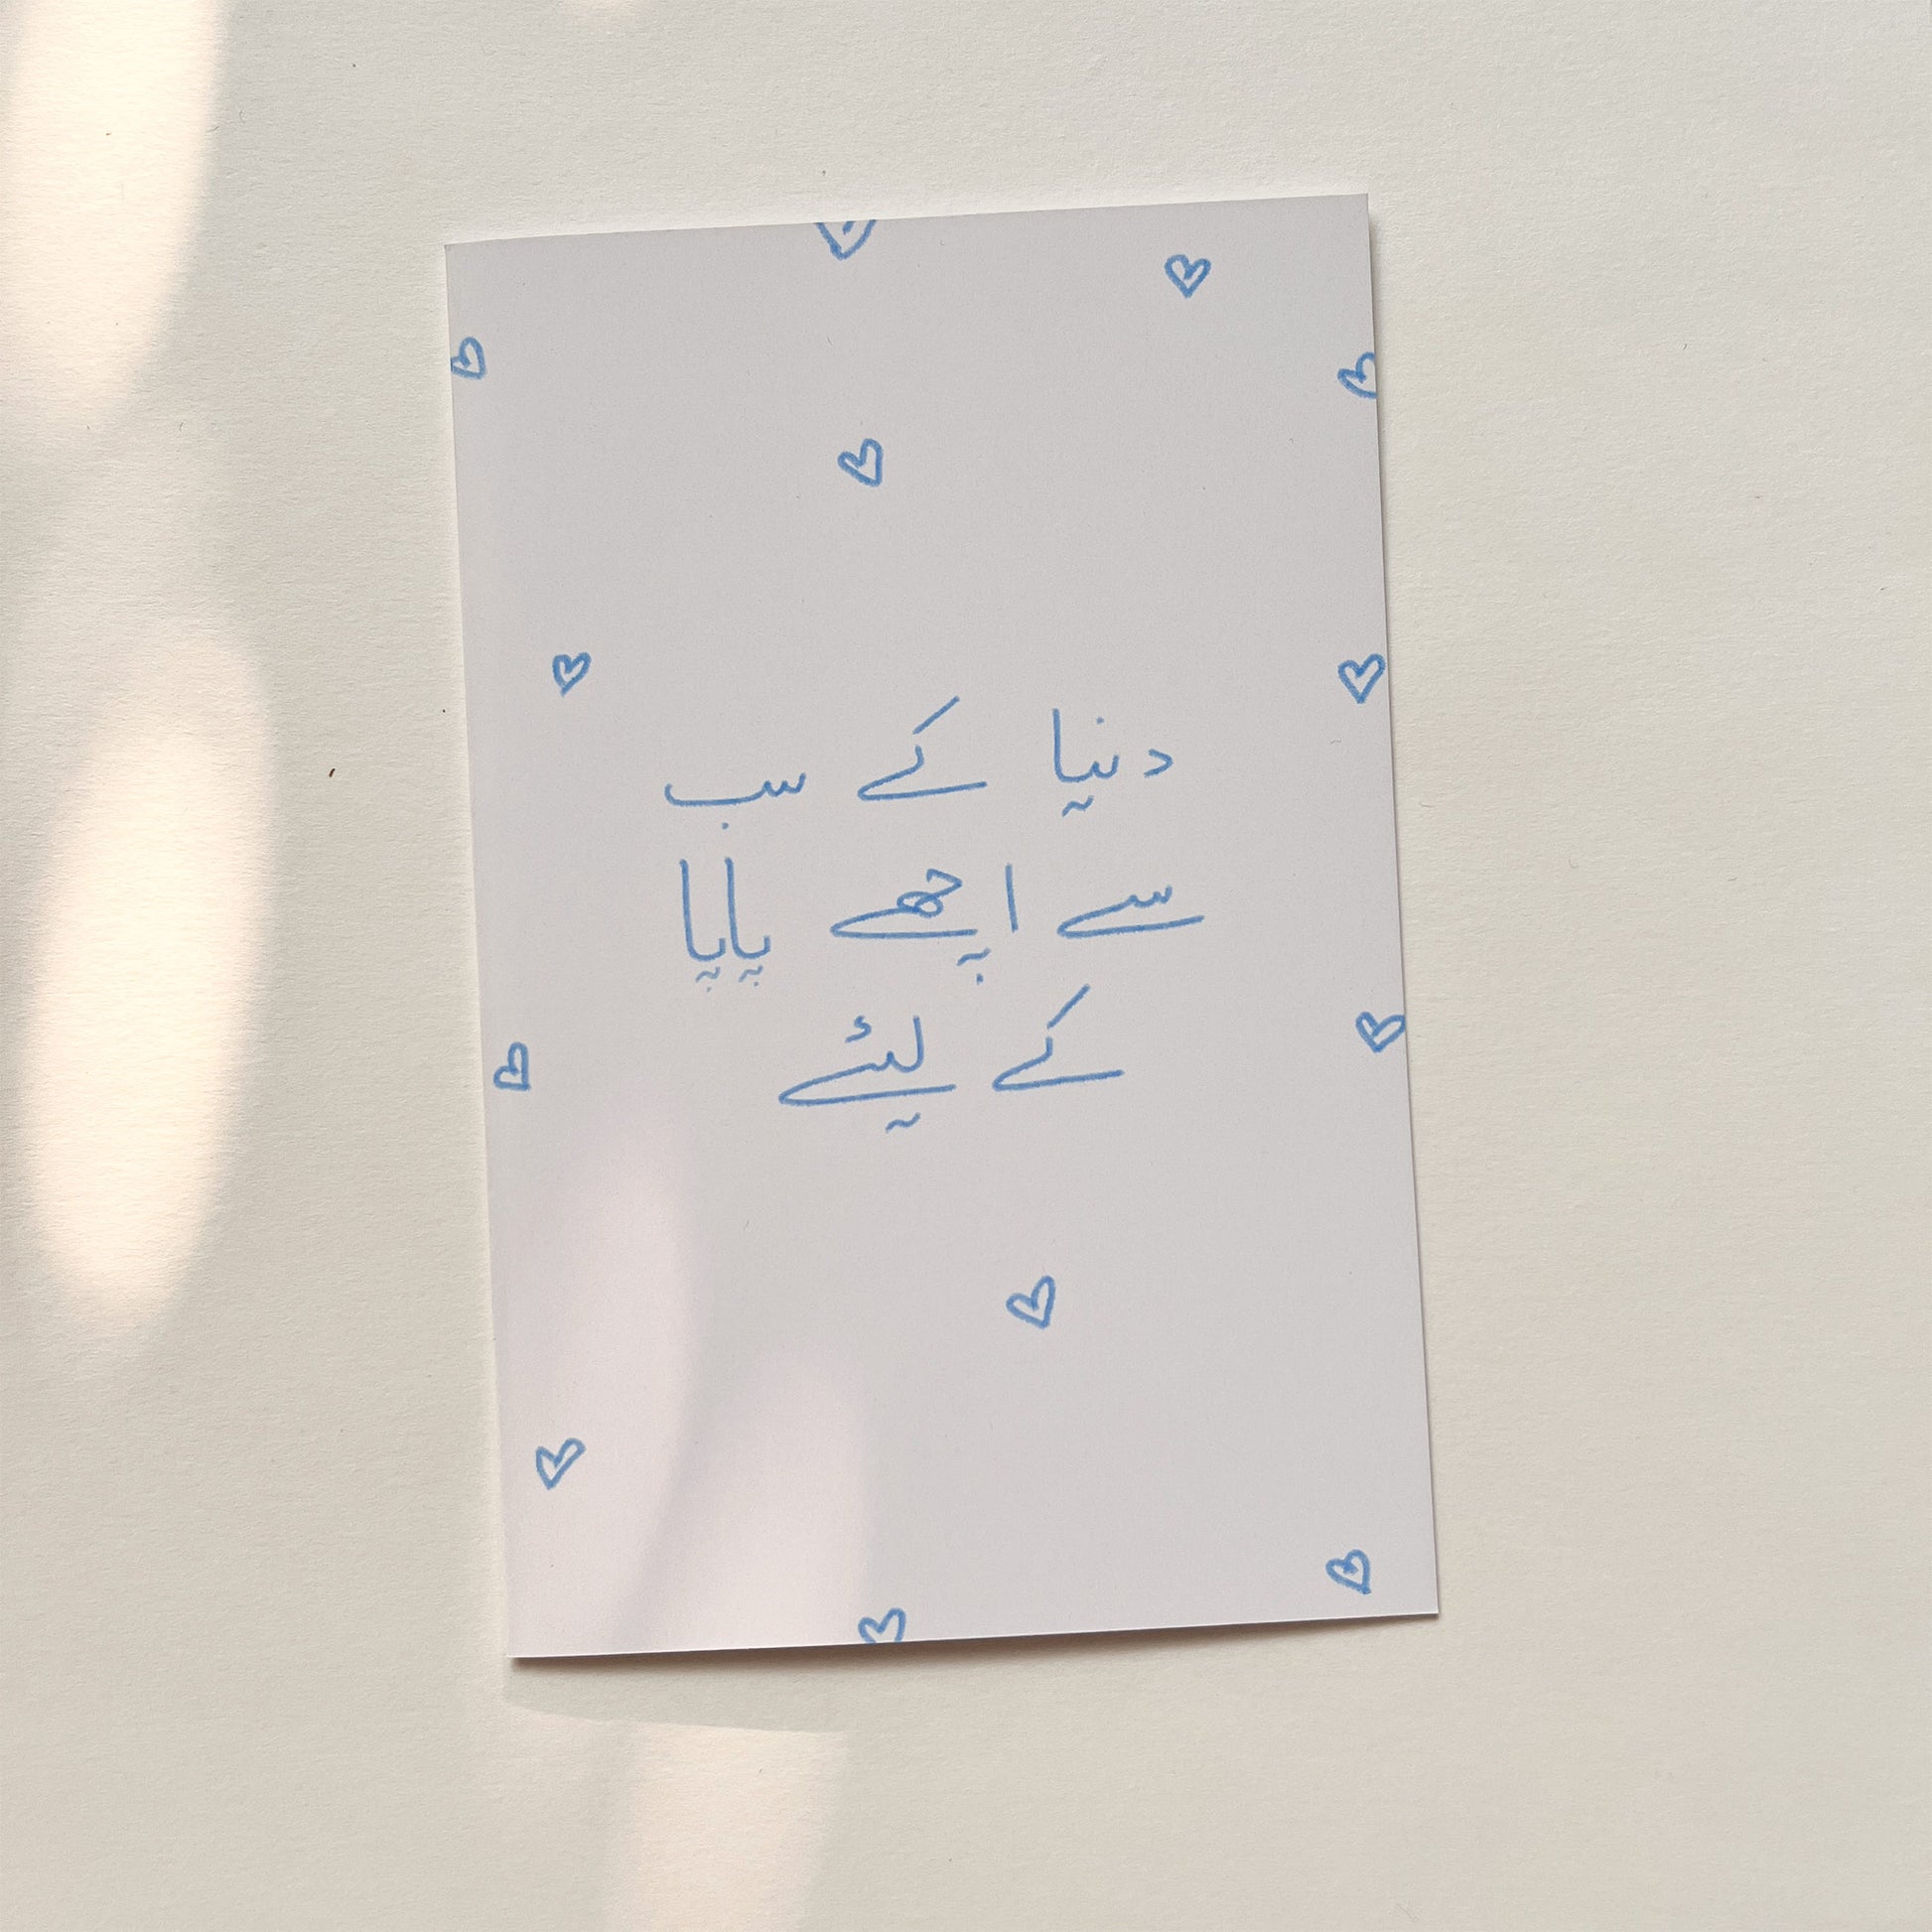 دنیا کے سب
سے اچھے پاپا
کے لیئے